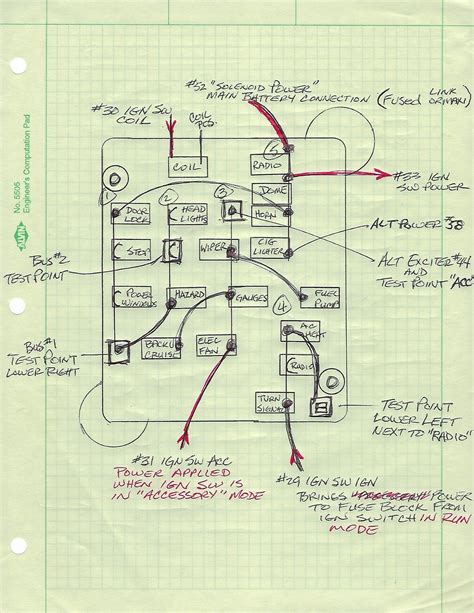 No. 5506
Engineer's Computation Pad
ALVIN
#52 "SOLENOID POWER"
MAIN BATTERY CONNECTION (FUSED LINK
OR MAXI)
#30 IGN SW
COIL
COIL
POS.
COIL
5
RADIO
#33 IGN
SW POWER
DOME
1
2
3
DOOR
LOCK
HEAD
LIGHTS
HORN
ALT POWER #38
STOP
WIPER
CIG
LIGHTER
BUS #2
TEST POINT
ALT EXCITER #44
AND TEST POINT "ACC"
POWER
WINDOWS
HAZARD
GAUGES
4
FUEL
PUMP
BUS #1
TEST POINT
LOWER RIGHT
BACKUP
CRUISE
ELEC
FAN
A/C
HEAT
RADIO
TURN
SIGNAL
TEST POINT
LOWER LEFT
NEXT TO "RADIO"
#31 IGN SW ACC
POWER APPLIED
WHEN IGN SW IS
IN "ACCESSORY" MODE
#29 IGN SW IGN
BRINGS POWER
TO FUSE BLOCK FROM
IGN SWITCH IN RUN
MODE